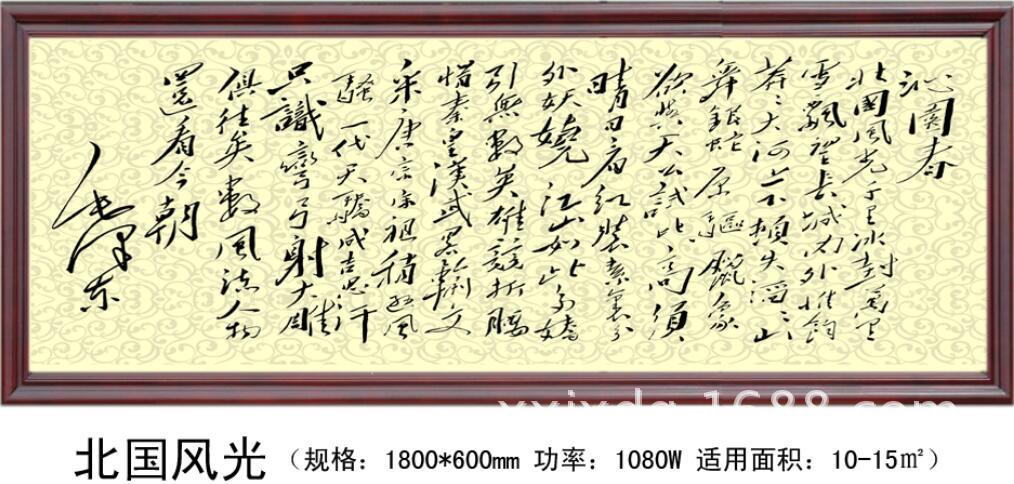 沁園春
北國風光千里冰封萬里
雪飄望長城内外惟餘
莽〻大河上下頓失滔〻山
舞銀蛇原驅蠟象
欲與天公試比高須
晴日看紅裝素裹分
外妖嬈江山如此多嬌
引無數英雄競折腰
惜秦皇漢武略輸文
采唐宗宋祖稍遜風
騷一代天驕成吉思汗
只識彎弓射大雕
俱往矣數風流人物
還看今朝
毛澤東
xxjxdq.1688.com
北国风光（规格：1800*600mm 功率：1080W 适用面积：10-15㎡）